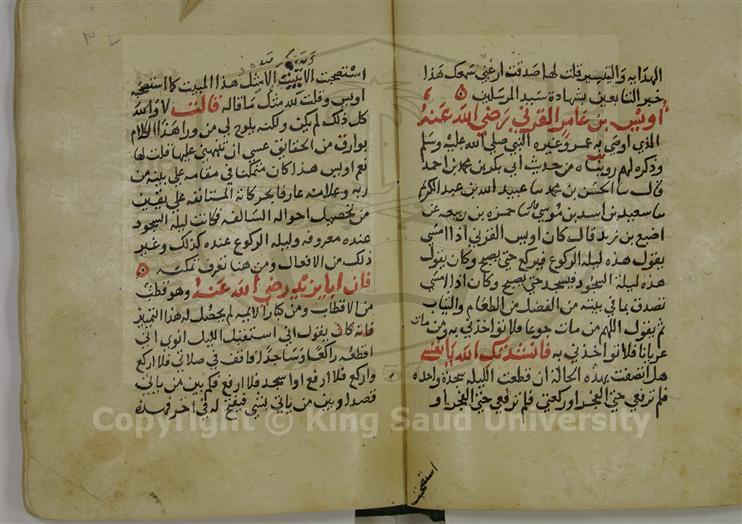 الهدايه والتيسير قلت لها صدقت ارعني سمعك هذا
خير التابعين بشهادة سيد المرسلين
اويس بن عامر القرني رضي الله عنه
الذي اوصي به عمر وغيره النبي صلي الله عليه وسلم
وذكره لهم روينا من حديث ابي بكر بن محمد بن احمد
قال الحسن بن محمد عبيد الله بن عبد الكريم
سعيد بن اسد بن موسي حمزه بن ربيعه عن
اصبغ بن زيد قال كان اويس القرني اذا امسي
يقول هذه ليلة الركوع فيركع حتي يصبح وكان يقول
هذه ليلة السجود فيسجد حتي يصبح وكان اذا امسي
تصدق بما في بيته من الفضل من الطعام والثياب
ثم يقول اللهم من مات جوعا فلا تواخذني به ومن مات
عريانا فلا تواخذني به فانشدتك الله يا نفسي
هل اتصفت بهذه الحالة ان قطعت الليله سجدة واحده
فلم ترفعي حتي الفجر او ركعتي فلم ترفعي حتي الفجر او
استصحبت
استصحبت الا المبيت كما استصحبه
اويس وقلت لله مثل ما قاله قالت لا والله
كل ذلك لم يكن ولكنه يلوح لي من ورا هذا الكلام
بوارق من الحقائق عسي ان تنبهني عليها قلت لها
نعم اويس هذا كان متمكنا في مقامه علي بينة من
ربه وعلامته عارفا بحركاته المستانفه علي يقين
من تحصيل احواله السالفه فكانت ليلة السجود
عنده معروفه وليلة الركوع عنده كذلك وغير
ذلك من الافعال ومن هنا تعرف
فان ابا يزيد رضي الله عنه وهو قطب
من الاقطاب ومن كبار الايمه لم يحصل له هذا التمييز
فانه كان يقول اني استقبل الليل انوي اني
اقطعه راكعا وساجدا وواقف في صلاتي فلا اركع
واركع فلا ارفع او اسجد فلا ارفع فكم بين من ياتي
قصدا وبين من ياتي بشي فيفتح له في اخر فهذه
Copyright © King Saud University